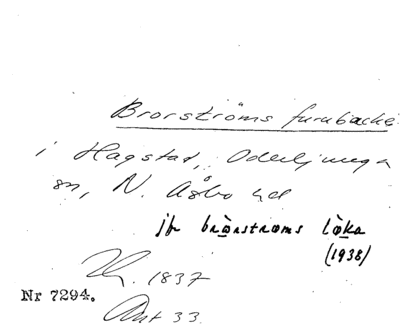 Brorströms furubacke
i Hagstad, Oderljunga
sn, N. Åsbo hd
jfr brörstroms löka
(1938)
1837
Nr 7294.
Ant 33